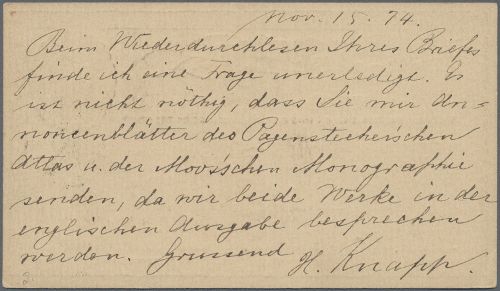 Nov. 15. 74.
Beim Wiederdurchlesen Ihres Briefes
finde ich eine Frage unerledigt. Es
ist nicht nöthig, dass Sie mir An-
noncenblätter des Pagenstecher'schen
Atlas u. der Mooi'schen Monographie
senden, da wir beide Werke in der
englischen Ausgabe besprechen
werden. Grüssend
H. Knapp.